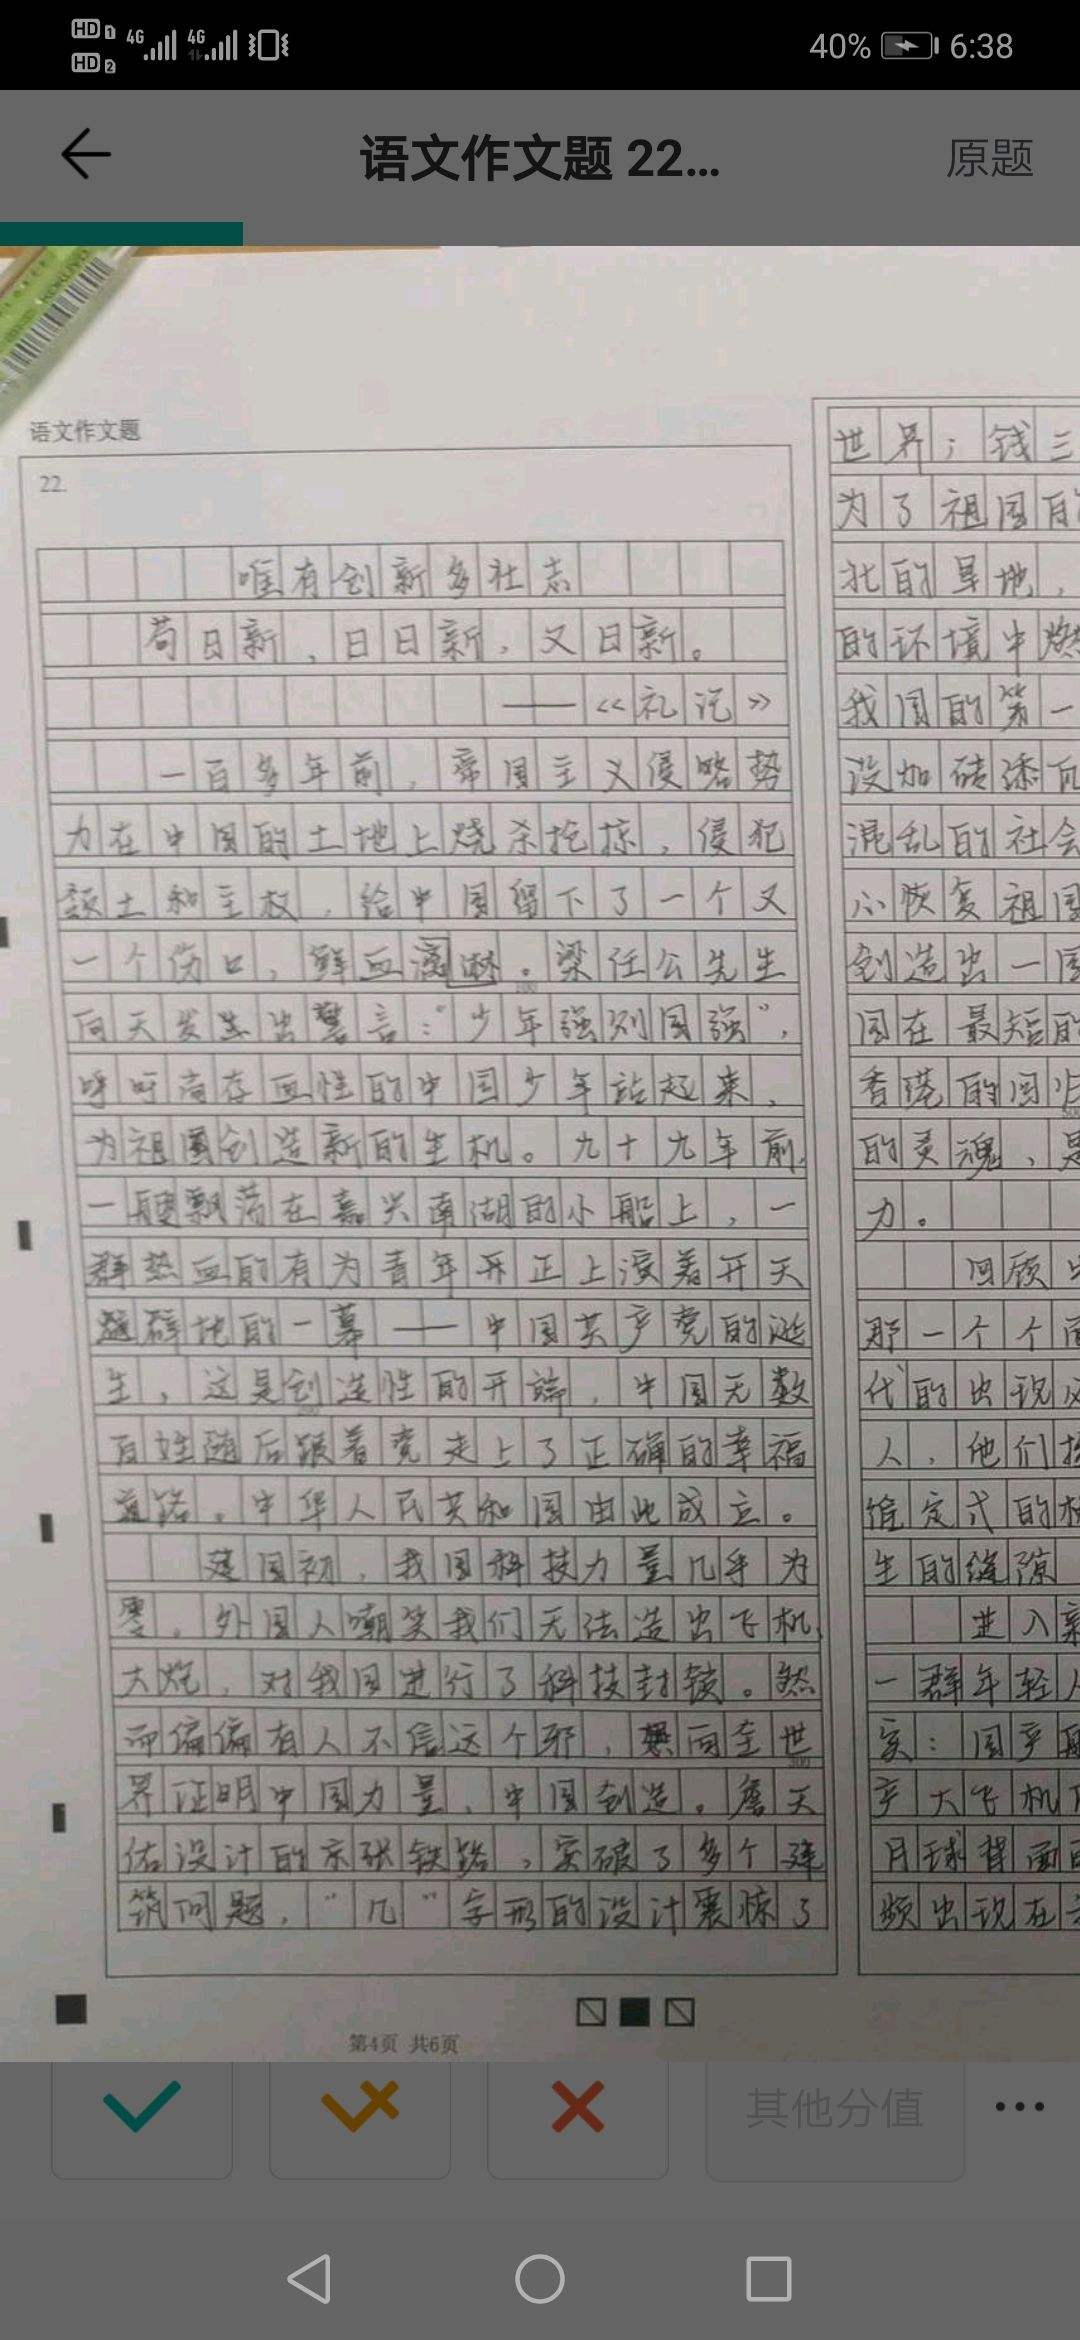 HD 1 4G 4G
HD 2
40% 6:38
语文作文题 22...
原题
KOKUYO
语文作文题
22.
唯有创新多壮志
苟日新,日日新,又日新。
——《礼记》
一百多年前,帝国主义侵略势
力在中国的土地上烧杀抢掠,侵犯
领土和主权,给中国留下了一个又
一个伤口,鲜血淋。梁任公先生
100
向天发出警言:“少年强则国强”,
呼吁尚存血性的中国少年站起来,
为祖国创造新的生机。九十九年前,
一艘飘荡在嘉兴南湖的小船上,一
群热血的有为青年开正上演着开天
辟地的一幕——中国共产党的诞
生,这是创造性的开端,中国无数
200
百姓随后跟着党走上了正确的幸福
道路。中华人民共和国由此成立。
建国初,我国科技力量几乎为
零,外国人嘲笑我们无法造出飞机,
大炮,对我国进行了科技封锁。然
而偏偏有人不信这个邪,面全世
300
界证明中国力量,中国创造。詹天
佑设计的京张铁路,突破了多个建
筑问题,“几”字形的设计震惊了
世界;钱三
为了祖国的
北的旱地,
的环境中燃
我国的第一
没加砖添瓦
混乱的社会
小恢复祖国
创造出一国
国在最短的
香港的回归
500
的灵魂,是
力。
回顾中
那一个个
代的出现
人,他们
维定式的
生的缝隙
进入新
一群年轻人
实:国产
产大飞机
月球背面
频出现在
第4页 共6页
其他分值